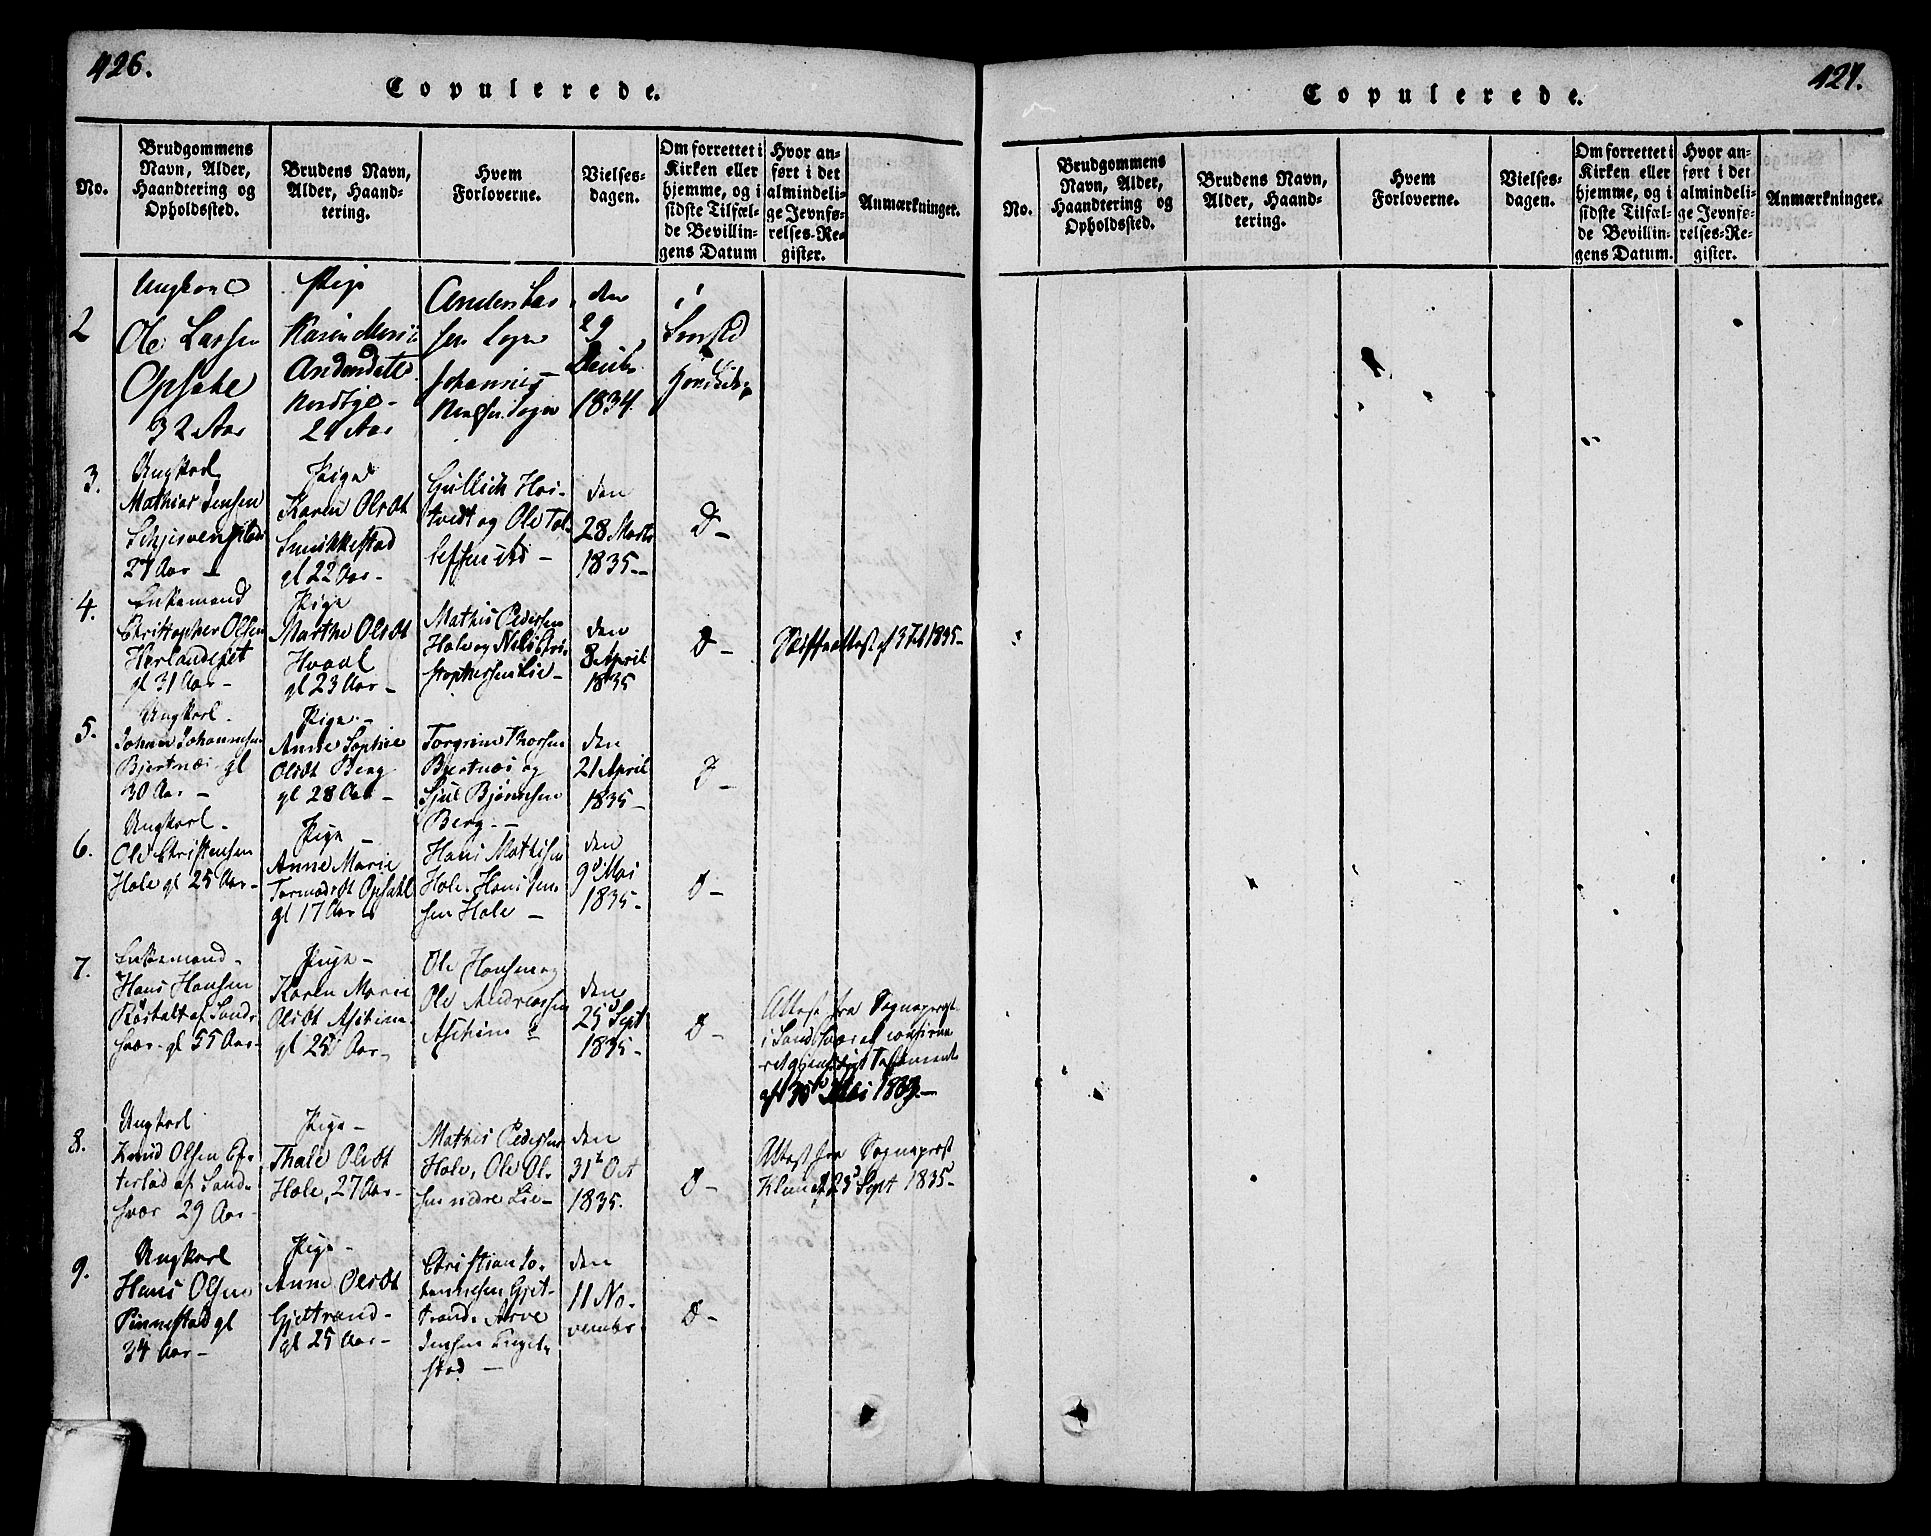 426.
Copulerede.
No.
Brudgommens
Navn, Alder,
Haandtering og
Opholdssted.
Brudens Navn,
Alder, Haand-
tering.
Hvem
Forloverne.
Vielses-
dagen.
Om forrettet i
Kirken eller
hjemme, og i
sidste Tilfæl-
de Bevillin-
gens Datum
Hvor an-
ført i det
almindeli-
ge Jevnfø-
relses-Re-
gister.
Anmærkninger.
2
Ungkarl
Ole Larsen
Opsahl
32 Aar
Pige
Karen Marie
Andersdatt.
Anders Lar
sen
Johannes
den
29
Decbr.
1834.
i
3.
Ungkarl
Mathias Jensen
27 Aar –
Pige
Karen Olsdt
Smikkestad
gl 22 Aar –
Gullich Hoi-
tvedt og Ole Tol-
lefsen
den
28 Marts
1835 –
D –
4.
Enkemand
Christopher Olsen
gl 31 Aar –
Pige
Marthe Olsdt
Hvaal
gl 23 Aar –
Mathis Pedersen
Hole og Nils Chri-
stophersen Lie –
den
8 April
1835
D –
Skifteattest af 3 Feb 1835 –
5.
Ungkarl –
Johan Johannesen
Bjertnæs gl
30 Aar –
Pige –
Anne Sophie
Olsdt Berg
gl 28 Aar –
Torgrim Thorsen
Bjertnæs og
Sjul Bjørnsen
Berg. –
den
21 April
1835 –
D –
6.
Ungkarl –
Ole Christensen
Hole gl 25 Aar –
Pige –
Anne Marie
Opsahl
gl 17 Aar
Hans Mathisen
Hole. Hans Jen
sen Hole –
den
9de Mai
1835 –
D –
7.
Enkemand –
Hans Hansen
af Sands-
svær – gl 55 Aar –
Pige –
Karen Marie
Olsdt Aschim
gl 25 Aar –
Ole Hansen og
Ole Andreassen
Aschim
den
25 Sept
1835 –
D –
Attest fra Sogneprest
i Sandsvær at confirme
ret Testament
af 30 Mai 1833 –
8.
Ungkarl
Knud Olsen Ef-
testad af Sands-
svær 29 Aar –
Pige –
Thale Olsdt
Hole, 27 Aar –
Mathis Pedersen
Hole, Ole Ol-
sen nedre Lie –
den
31te Oct
1835.
D –
Attest fra Sogneprest
23 Sept 1835 –
9.
Ungkarl
Hans Olsen
Pinnestad gl
34 Aar –
Pige –
Anne Olsdt
Gjettrand –
gl 25 Aar –
Christian Jo-
hannesen Gjet-
trand. Arve
Jensen Engel-
stad –
den
11 No-
vember
D –
427.
Copulerede.
No.
Brudgommens
Navn, Alder,
Haandtering og
Opholdssted.
Brudens Navn,
Alder, Haand-
tering.
Hvem
Forloverne.
Vielses-
dagen.
Om forrettet i
Kirken eller
hjemme, og i
sidste Tilfæl-
de Bevillin-
gens Datum.
Hvor an-
ført i det
almindeli-
ge Jevnfø-
relses-Re-
gister.
Anmærkninger.